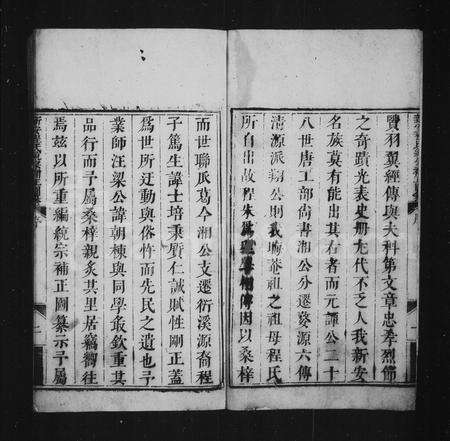 賢羽翼經傳與夫科第文章忠孝烈節
之奇蹟光表史册尤代不乏人我新安
名族莫有能出其右者而元譚公二十
八世唐工部尚書湘公分遷婺源六傳
清源派翔公則我晦菴祖之祖母程氏
所自出故程朱為理學相傳因以桑梓
而世聯瓜葛今湘公支遷衍溪源裔程
子篤生諱士培秉質仁誠賦性剛正蓋
為世所迂動與俗忤而先民之遺也予
業師汪梁公諱朝棟與同學最欽重其
品行而予屬桑梓親炙其里居竊嚮往
焉茲以所重編統宗補正圖纂示予屬
二